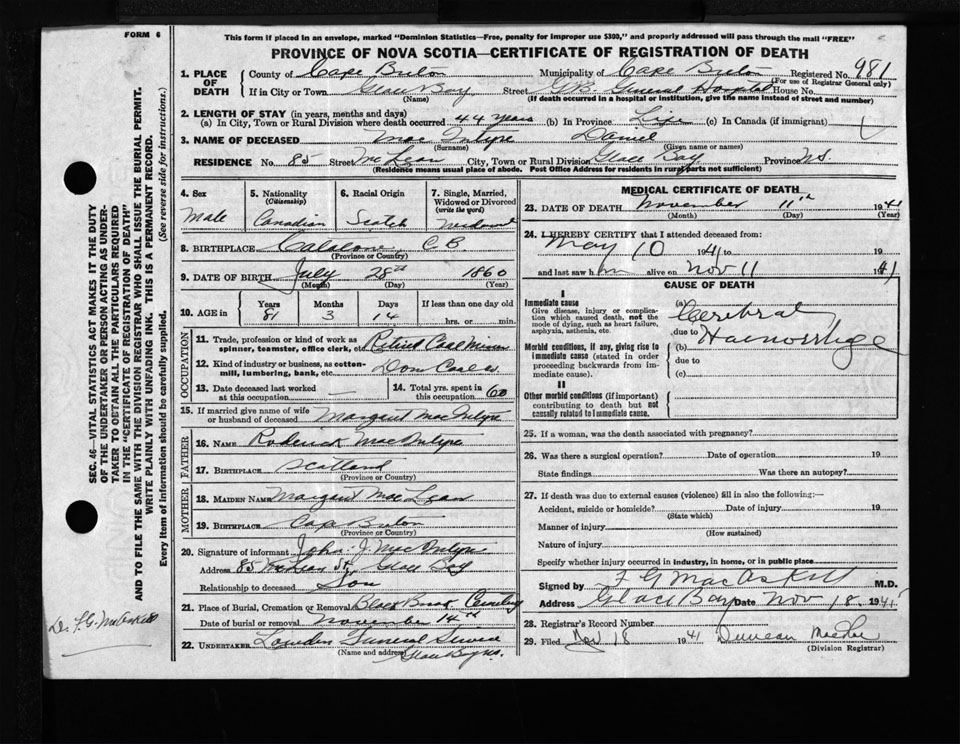 FORM 6
This form if placed in an envelope, marked "Dominion Statistics—Free, penalty for improper use $300," and properly addressed will pass through the mail "FREE"
PROVINCE OF NOVA SCOTIA—CERTIFICATE OF REGISTRATION OF DEATH
1. PLACE OF DEATH County of Cape Breton Municipality of Cape Breton Registered No. 981
(For use of Registrar General only)
If in City or Town Glace Bay Street G.B. General Hospital House No.
(Name) (If death occurred in a hospital or institution, give the name instead of street and number)
2. LENGTH OF STAY (in years, months and days)
(a) In City, Town or Rural Division where death occurred 44 years (b) In Province Life (c) In Canada (if immigrant)
3. NAME OF DECEASED MacIntyre Daniel
(Surname) (Given name or names)
RESIDENCE No. 85 Street McLean City, Town or Rural Division Glace Bay Province N.S.
(Residence means usual place of abode. Post Office Address for residents in rural parts not sufficient)
4. Sex Male
5. Nationality (Citizenship) Canadian
6. Racial Origin Scotch
7. Single, Married, Widowed or Divorced (write the word) Widowed
8. BIRTHPLACE C.B.
(Province or Country)
9. DATE OF BIRTH July 28th 1860
(Month) (Day) (Year)
10. AGE in Years 81 Months 3 Days 14 If less than one day old hrs. or min.
OCCUPATION
11. Trade, profession or kind of work as spinner, teamster, office clerk, etc. Retired Coal Miner
12. Kind of industry or business, as cotton-mill, lumbering, bank, etc. Dom Coal Co.
13. Date deceased last worked at this occupation —
14. Total yrs. spent in this occupation 60
15. If married give name of wife or husband of deceased Margaret MacIntyre
FATHER
16. NAME Roderick MacIntyre
17. BIRTHPLACE Scotland
(Province or Country)
MOTHER
18. MAIDEN NAME Margaret MacLean
19. BIRTHPLACE Cape Breton
(Province or Country)
20. Signature of informant John J. MacIntyre
Address 85 McLean St. Glace Bay
Relationship to deceased Son
21. Place of Burial, Cremation or Removal Black Brook Cemetery
Date of burial or removal November 14th
22. UNDERTAKER Lowden Funeral Service
(Name and address) Glace Bay N.S.
MEDICAL CERTIFICATE OF DEATH
23. DATE OF DEATH November 11th 1941
(Month) (Day) (Year)
24. I HEREBY CERTIFY that I attended deceased from:
May 10 1941 to 19
and last saw h im alive on Nov 11 1941
CAUSE OF DEATH
I
Immediate cause
Give disease, injury or complication which caused death, not the mode of dying, such as heart failure, asphyxia, asthenia, etc.
(a) Cerebral
due to
Morbid conditions, if any, giving rise to immediate cause (stated in order proceeding backwards from immediate cause).
(b) Haemorrhage
due to
(c)
II
Other morbid conditions (if important) contributing to death but not causally related to immediate cause.
25. If a woman, was the death associated with pregnancy?
26. Was there a surgical operation? Date of operation 19
State findings Was there an autopsy?
27. If death was due to external causes (violence) fill in also the following:—
Accident, suicide or homicide? Date of injury 19
(State which)
Manner of injury
(How sustained)
Nature of injury
Specify whether injury occurred in industry, in home, or in public place
Signed by F G MacAskill M.D.
Address Glace Bay Date Nov 18 1941
28. Registrar's Record Number
29. Filed Nov 18 1941
(Division Registrar)
SEC. 46—VITAL STATISTICS ACT MAKES IT THE DUTY
OF THE UNDERTAKER OR PERSON ACTING AS UNDER-
TAKER TO OBTAIN ALL THE PARTICULARS REQUIRED
IN THE "CERTIFICATE OF REGISTRATION OF DEATH"
AND TO FILE THE SAME WITH THE DIVISION REGISTRAR WHO SHALL ISSUE THE BURIAL PERMIT.
WRITE PLAINLY WITH UNFADING INK. THIS IS A PERMANENT RECORD.
Every item of information should be carefully supplied. (See reverse side for instructions.)
Dr. F.G. MacAskill